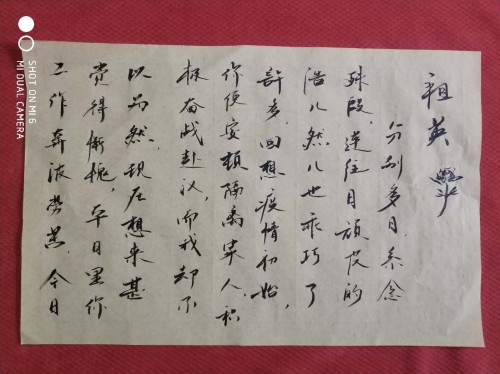 祖英
分别多日,系念
殊殷,连往日顽皮的
浩儿然儿也乖巧了
许多,回想疫情初始,
你便安顿隔离家人,积
极奋战赴汉,而我却不
以为然,现在想来甚
觉得惭愧,平日里你
工作奔波劳苦,今日
SHOT ON MI 6
MI DUAL CAMERA